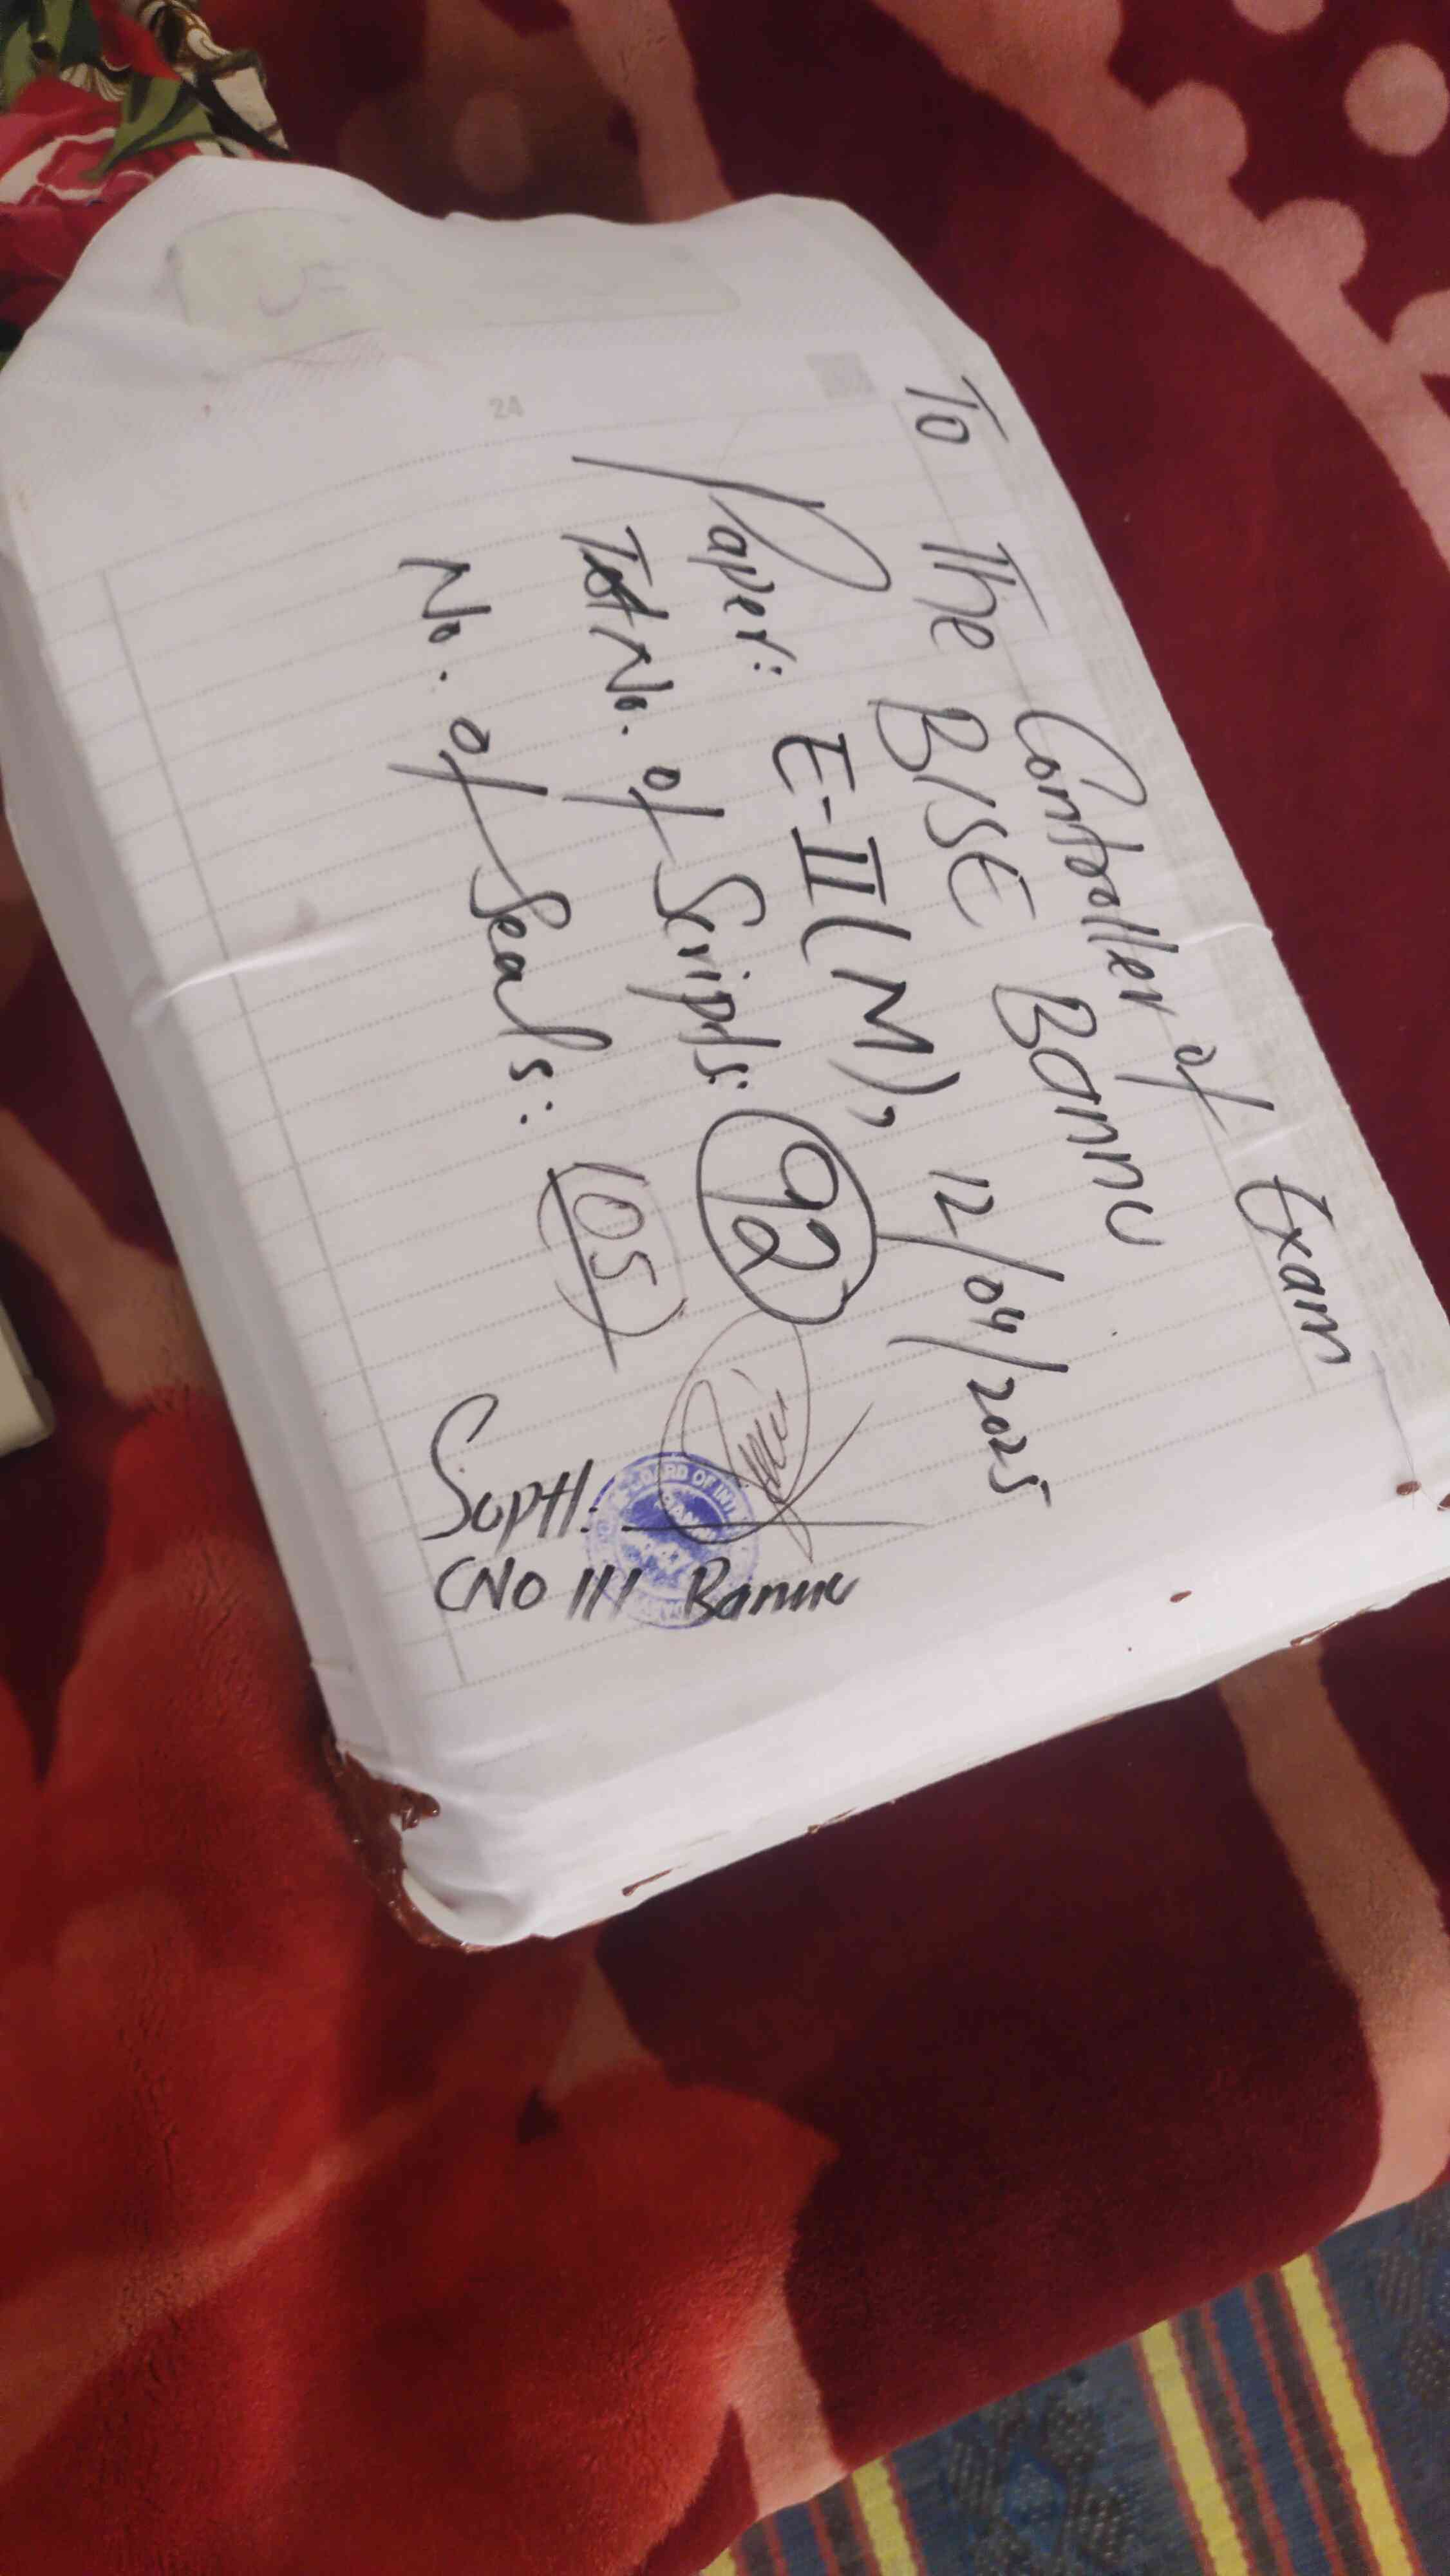 24
To The Controller of Exam
BISE Bannu
Paper: E-II(M), 12/04/2025
Tot No. of Scripts: 92
No. of Seals: 05
Suptt:
BOARD OF INT
CNO 111 Bannu